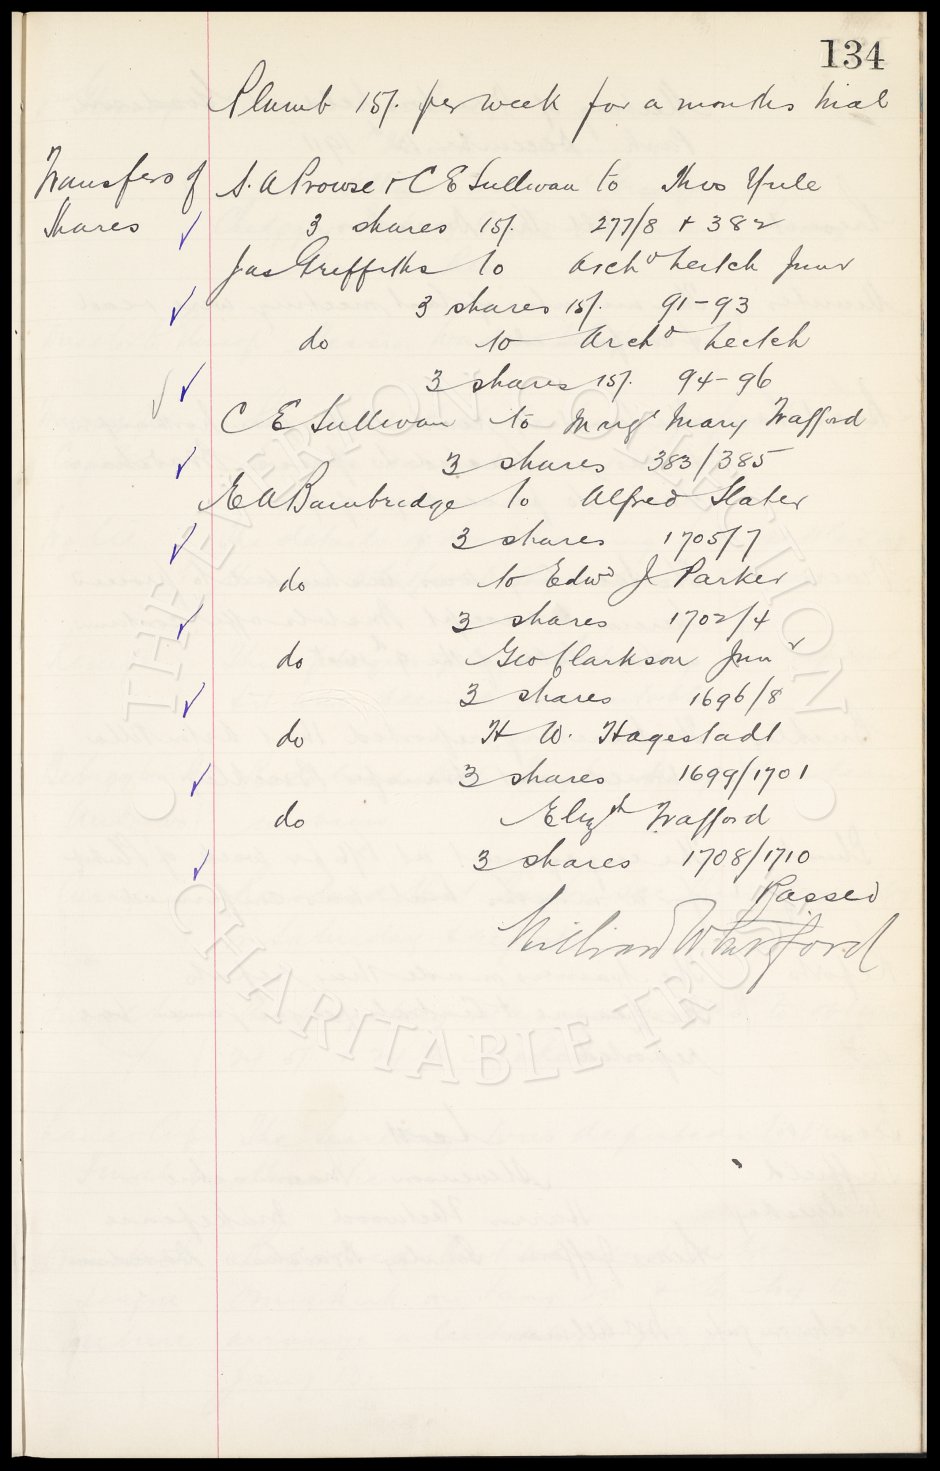 134
Plumb 15/. per week for a months trial
Transfers of Shares
S. A Prowse + C E Sullivan to Thos Yule
3 shares 15/. 277/8 + 382
Jas Griffiths to Archd Leitch Junr
3 shares 15/. 91-93
do to Archd Leitch
3 shares 15/. 94-96
C E Sullivan to Margt Mary Wafford
3 shares 383/385
E A Bainbridge to Alfred Slater
3 shares 1705/7
do to Edwd J Parker
3 shares 1702/4
do Geo Clarkson Junr
3 shares 1696/8
do H W. Hagestadt
3 shares 1699/1701
do Elizth Wafford
3 shares 1708/1710
Passed
William R Wafford
THE EVERTON COLLECTION
CHARITABLE TRUST